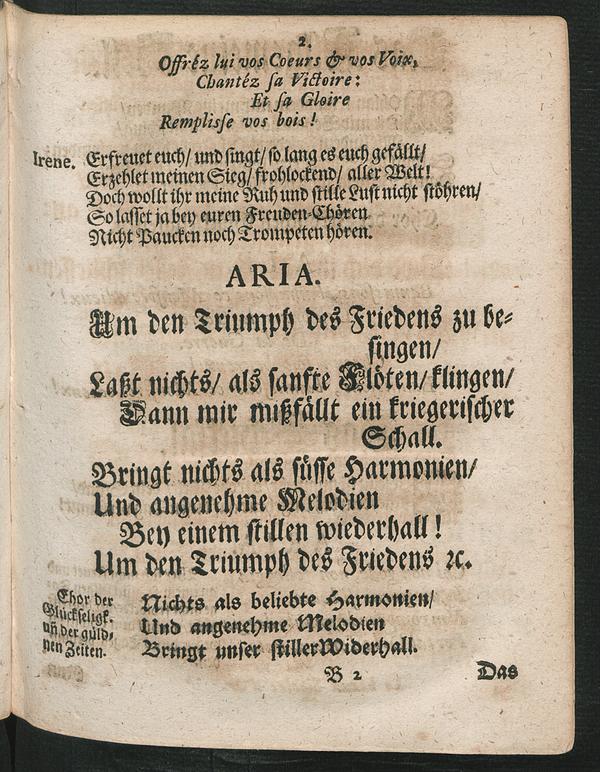 2.
Offréz lui vos Coeurs & vos Voix,
Chantéz ſa Victoire:
Et ſa Gloire
Rempliſſe vos bois!
Irene. Erfreuet euch/ und ſingt/ ſo lang es euch gefällt/
Erzehlet meinen Sieg/ frohlockend/ aller Welt!
Doch wollt ihr meine Ruh und ſtille Luſt nicht ſtöhren/
So laſſet ja bey euren Freuden-Chören
Nicht Paucken noch Trompeten hören.
ARIA.
Um den Triumph des Friedens zu be-
ſingen/
Laßt nichts/ als ſanfte Flöten/ klingen/
Dann mir mißfällt ein kriegeriſcher
Schall.
Bringt nichts als ſüſſe Harmonien/
Und angenehme Melodien
Bey einem ſtillen wiederhall!
Um den Triumph des Friedens ꝛc.
Chor der
Glückſeligk.
uñ der güld-
nen Zeiten.
Nichts als beliebte Harmonien/
Und angenehme Melodien
Bringt unſer ſtiller Widerhall.
B 2
Das